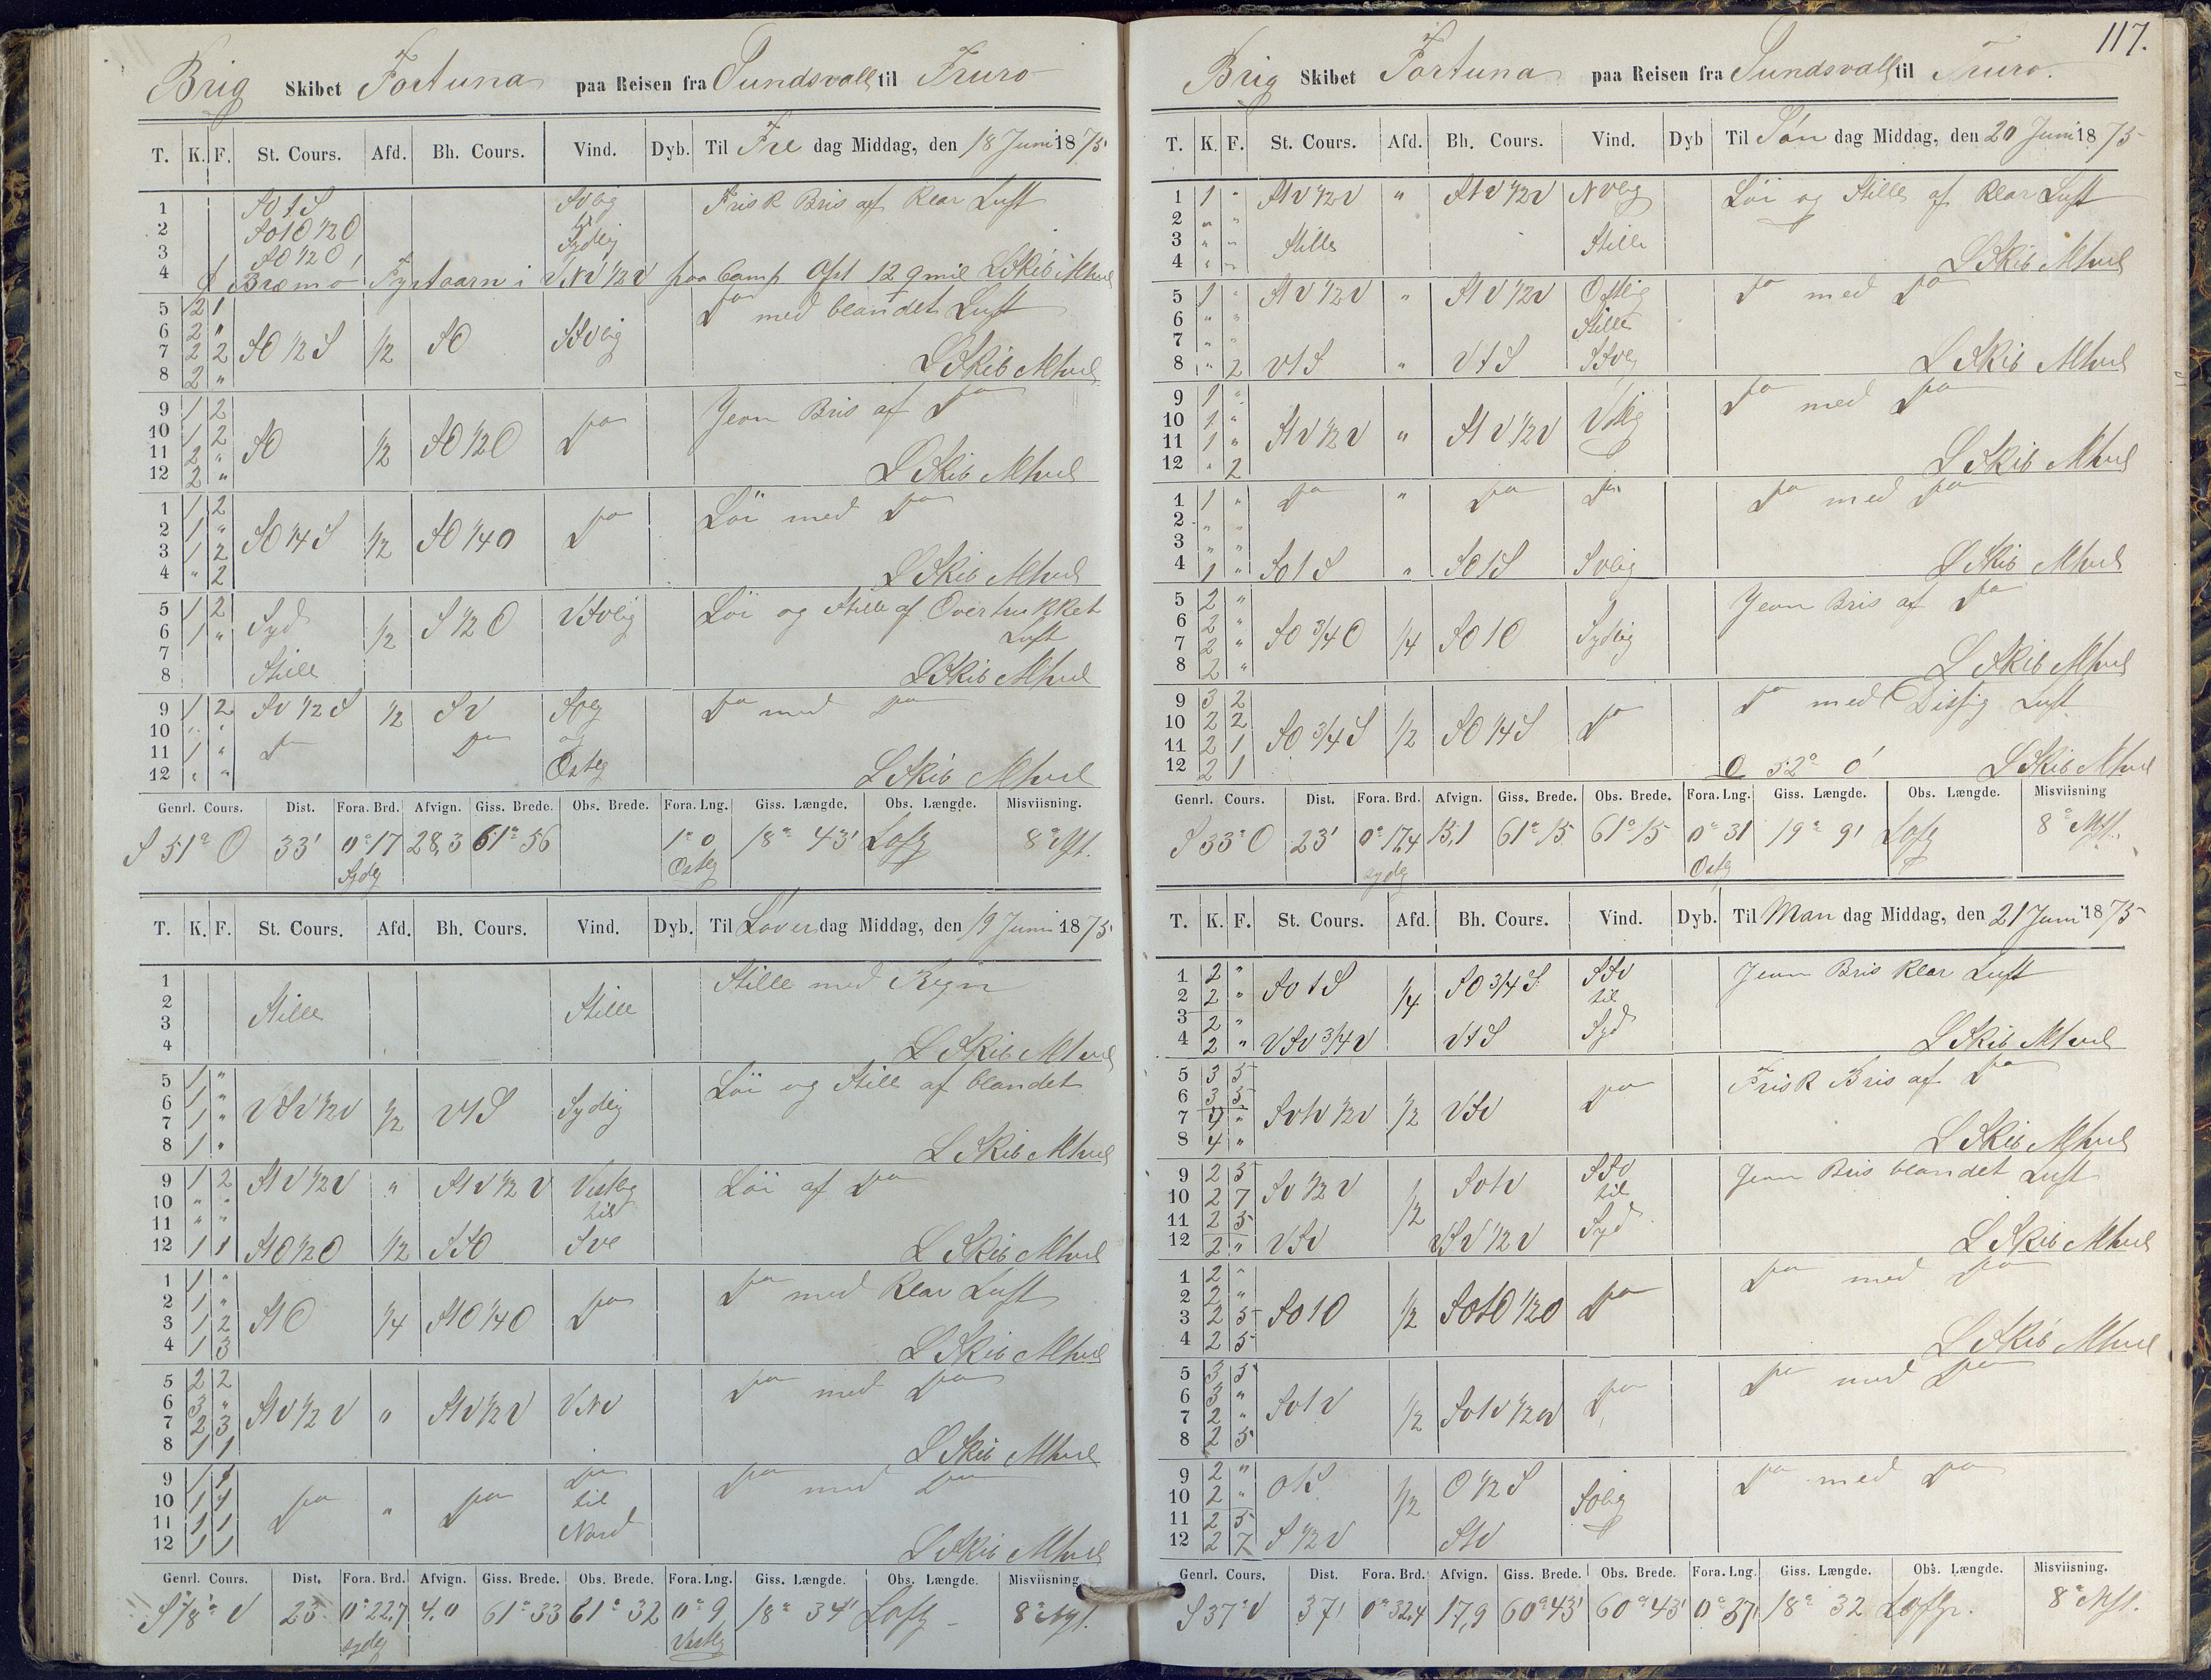 Brig Skibet Fortuna paa Reisen fra Sundsvall til Truro
T. K. F. St. Cours. Afd. Bh. Cours. Vind. Dyb. Til Fre dag Middag, den 18 Juni 1875
1 Frisk Bris af Klar Luft
2 til
3 SO 1/2 O Sydlig
4 Bræmø Fyrtaarn i VNV 1/2 V paa Comp Afst 12 qmil L Skib
5 2 1 Do med blandet Luft
6 2 "
7 2 2 SO 1/2 S 1/2 SO SSvlig
8 2 " L Skib
9 1 2 Jevn Bris af Do
10 1 2
11 2 " SO 1/2 SO 1/2 O Do
12 2 " L Skib
1 1 2 Löi med Do
2 1 " SO 1/4 S 1/2 SO 1/4 O Do
3 1 2
4 " 2 L Skib
5 1 2 Syd 1/2 S 1/2 O VSvlig Löi og Stille af Overtrukket
6 1 " Luft
7
8 Stille L Skib
9 1 2 Sv 1/2 S 1/2 SV Do med Do
10 " " og
11 1 " Do Do
12 " " Ostlig L Skib
Genrl. Cours. Dist. Fora. Brd. Afvign. Giss. Brede. Obs. Brede. Fora. Lng. Giss. Længde. Obs. Længde. Misviisning.
S 51° O 33' 0° 17 28,3 61° 56 1° 0 18° 43' 8°
Sydlg Ostlg
T. K. F. St. Cours. Afd. Bh. Cours. Vind. Dyb. Til Löver dag Middag, den 19 Juni 1875
1 Stille med Regn
2 Stille Stille
3
4 L Skib
5 1 " Löi og Stille af blandet
6 1 " VSV 1/2 V 1/2 Vt S Sydlig
7 1 "
8 1 " L Skib
9 1 2 St V 1/2 V " St V 1/2 V Vestlig Löi af Do
10 " " til
11 " "
12 1 1 St O 1/2 O 1/2 SSO L Skib
1 1 " Do med Klar Luft
2 1 "
3 1 2 St O 1/4 St O 1/4 O Do
4 1 3 L Skib
5 2 2 Do med Do
6 3 "
7 2 3 St V 1/2 V " St V 1/2 V VNV
8 1 1 L Skib
9 1 1 Do Do med Do
10 1 1 Do " Do til
11 1 1 Nord
12 1 1 L Skib
Genrl. Cours. Dist. Fora. Brd. Afvign. Giss. Brede. Obs. Brede. Fora. Lng. Giss. Længde. Obs. Længde. Misviisning.
S 18° V 23 0° 22,7 4,0 61° 33 61° 32 0° 9 18° 34' 8°
sydlg Vestlg
117.
Brig Skibet Fortuna paa Reisen fra Sundsvall til Truro.
T. K. F. St. Cours. Afd. Bh. Cours. Vind. Dyb Til Sön dag Middag, den 20 Juni 1875
1 1 " St V 1/2 V " St V 1/2 V NVlig Löi og Stille af Klar Luft
2 " "
3 " " Stille Stille
4 " " L Skib
5 1 " St V 1/2 V " St V 1/2 V Ostlig Do med Do
6 " " Stille
7 " "
8 " 2 Vt S " Vt S SSvlig L Skib
9 1 " Do med Do
10 1 " St V 1/2 V " St V 1/2 V Vstlig
11 1 "
12 " 2 L Skib
1 1 " Do " Do Do Do med Do
2 " "
3 " "
4 1 " SO t S " SO t S Svlig L Skib
5 2 " Jevn Bris af Do
6 2 " SO 3/4 O 1/4 SO t O Sydlig
7 2 "
8 2 " L Skib
9 3 2 Do med Disfig Luft
10 2 2 SO 3/4 S 1/2 SO 1/4 S Do
11 2 1
12 2 1 O 52° 0' L Skib
Genrl. Cours. Dist. Fora. Brd. Afvign. Giss. Brede. Obs. Brede. Fora. Lng. Giss. Længde. Obs. Længde. Misviisning
S 33° O 23' 0° 17,4 15,1 61° 15 61° 15 0° 31 19° 9' 8°
sydlg Ostlg
T. K. F. St. Cours. Afd. Bh. Cours. Vind. Dyb. Til Man dag Middag, den 21 Juni 1875
1 2 " SO t S 1/4 SO 3/4 S SSV Jevn Bris Klar Luft
2 2 " til
3 2 " Syd
4 2 " VSV 3/4 V Vt S L Skib
5 3 5 Frisk Bris af Do
6 3 5 Do
7 4 " Sv t V 1/2 V 1/2 VSV
8 4 " L Skib
9 2 5 SV 1/2 V 1/2 Sv t V Jevn Bris blandet Luft
10 2 7 til
11 2 5 Syd
12 2 " VSV VSV 1/2 V L Skib
1 2 " Do med Do
2 2 "
3 2 5 SO t O 1/2 SO t O 1/2 O Do
4 2 5 L Skib
5 3 5 Do med Do
6 3 " Do
7 2 " Sv t V 1/2 Sv t V 1/2 V
8 2 5
9 2 " O t S 1/2 O 1/2 S Do med Do
10 2 "
11 2 5
12 2 7 S 1/2 V St V
Genrl. Cours. Dist. Fora. Brd. Afvign. Giss. Brede. Obs. Brede. Fora. Lng. Giss. Længde. Obs. Længde. Misviisning.
S 37° V 37' 0° 32,4 17,9 60° 43' 60° 43' 0° 37' 18° 32 8°